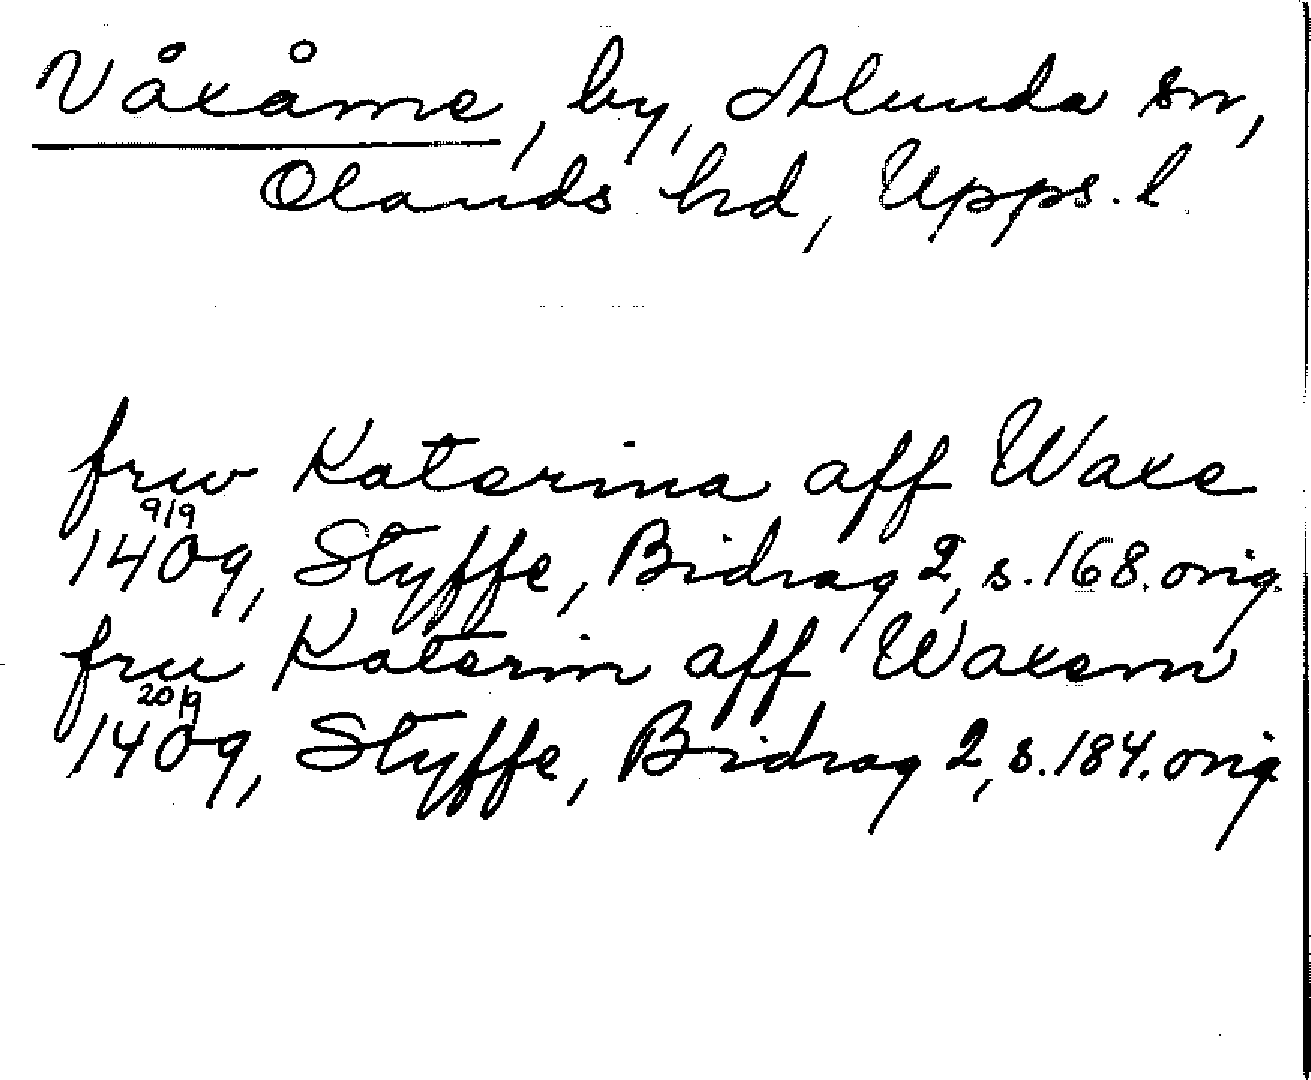 Våxåme, by, Alunda sn,
Olands hd, Upps. l.
frw Katerina aff Waxe
9/9
1409, Styffe, Bidrag 2, s. 168. orig.
frw Katerin aff Waxem
20/9
1409, Styffe, Bidrag 2, s. 184. orig